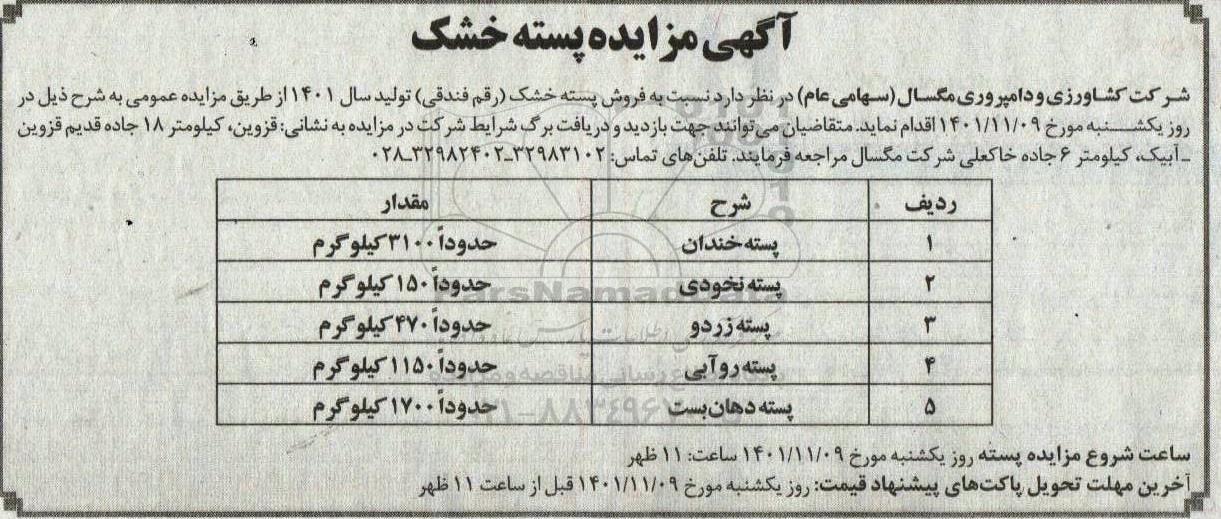 آگهی مزایده پسته خشک
شرکت کشاورزی و دامپروری مگسال (سهامی عام) در نظر دارد نسبت به فروش پسته خشک (رقم فندقی) تولید سال ۱۴۰۱ از طریق مزایده عمومی به شرح ذیل در
روز یکشنبه مورخ ۱۴۰۱/۱۱/۰۹ اقدام نماید. متقاضیان می‌توانند جهت بازدید و دریافت برگ شرایط شرکت در مزایده به نشانی: قزوین، کیلومتر ۱۸ جاده قدیم قزوین
ـ آبیک، کیلومتر ۶ جاده خاکعلی شرکت مگسال مراجعه فرمایند. تلفن‌های تماس: ۳۲۹۸۳۱۰۲ـ۳۲۹۸۲۴۰۲ـ۰۲۸
ردیف شرح مقدار
۱ پسته خندان حدوداً ۳۱۰۰ کیلوگرم
۲ پسته نخودی حدوداً ۱۵۰ کیلوگرم
۳ پسته زردو حدوداً ۴۷۰ کیلوگرم
۴ پسته روآبی حدوداً ۱۱۵۰ کیلوگرم
۵ پسته دهان‌بست حدوداً ۱۷۰۰ کیلوگرم
ParsNamadData
ساعت شروع مزایده پسته روز یکشنبه مورخ ۱۴۰۱/۱۱/۰۹ ساعت: ۱۱ ظهر
آخرین مهلت تحویل پاکت‌های پیشنهاد قیمت: روز یکشنبه مورخ ۱۴۰۱/۱۱/۰۹ قبل از ساعت ۱۱ ظهر